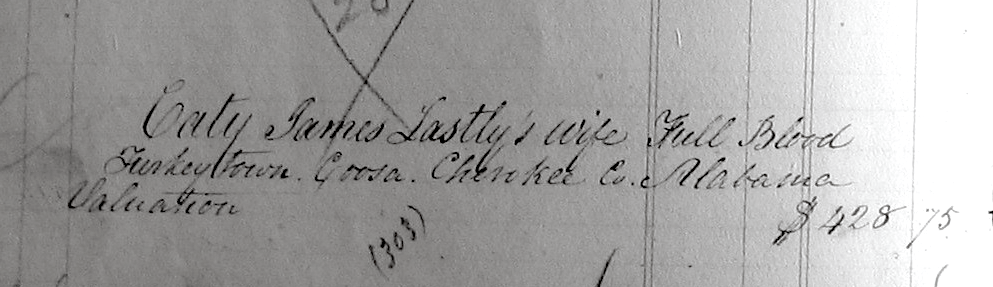 20
Caty James Lastly's wife Full Blood
Turkey town. Goosa. Cherokee Co. Alabama
Valuation $428 75
(303)